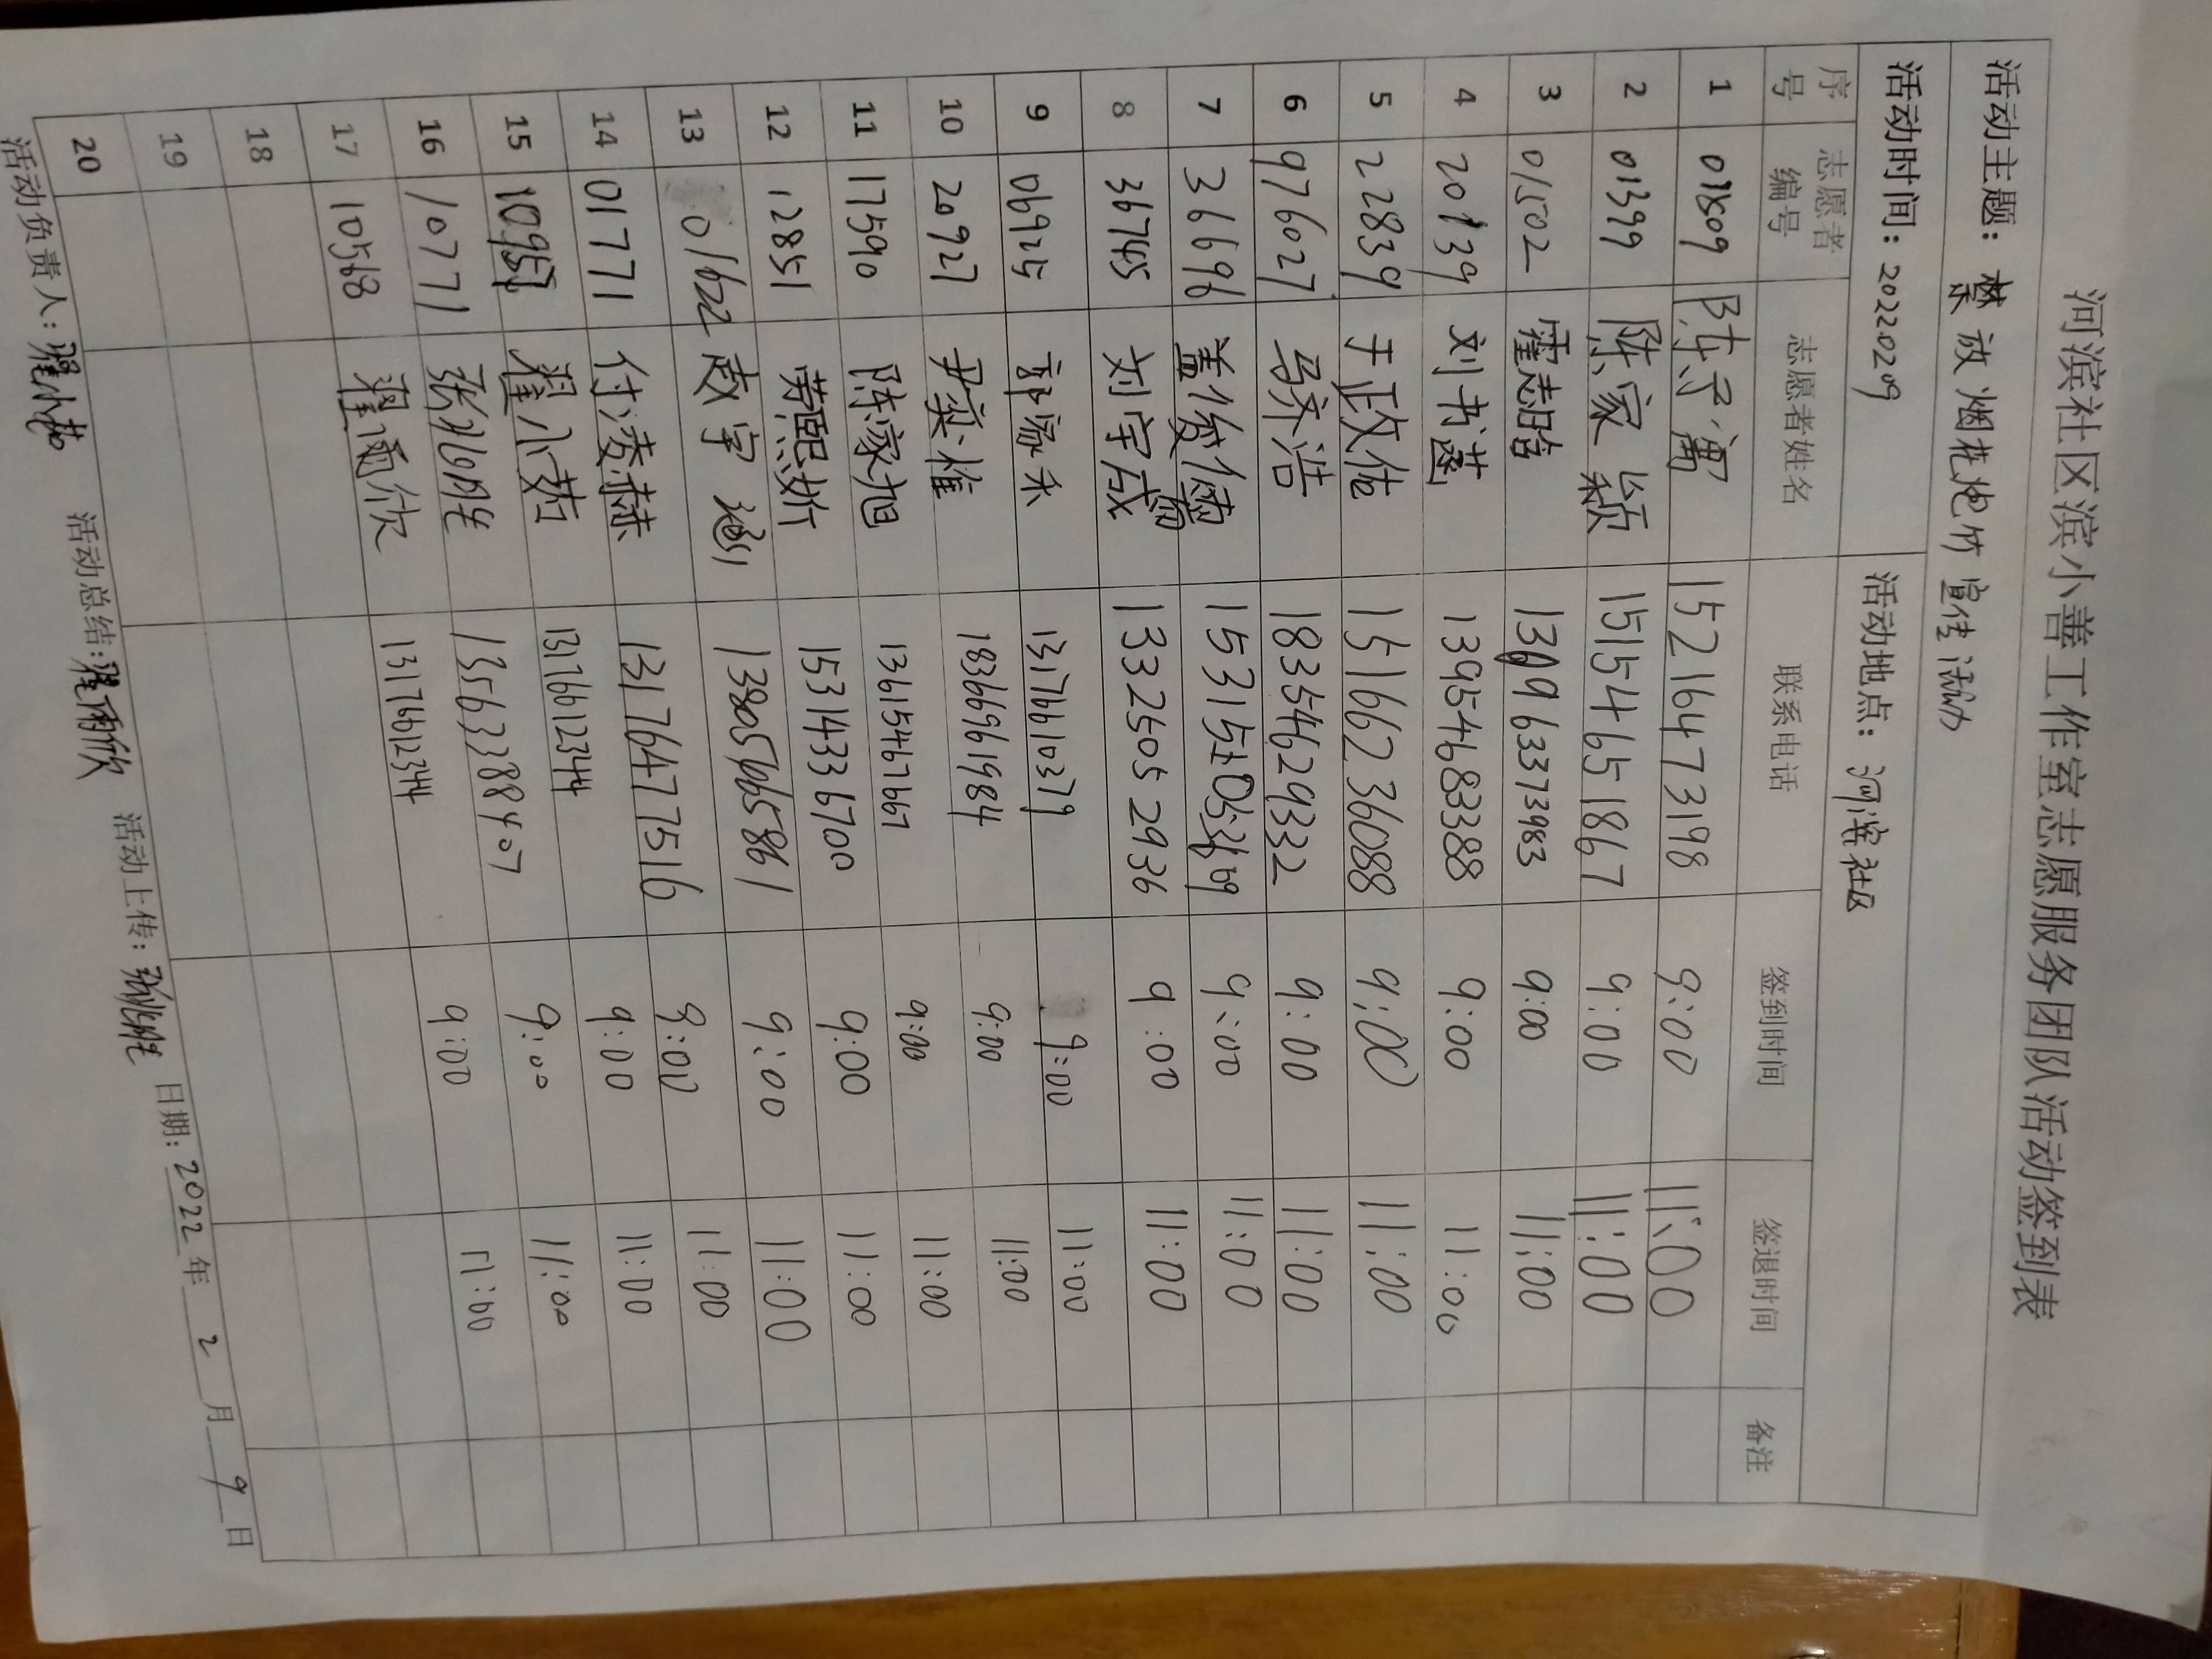 河滨社区滨小善工作室志愿服务团队活动签到表
活动主题：禁放烟花炮竹宣传活动
活动时间：20220209 活动地点：河滨社区
序号 志愿者编号 志愿者姓名 联系电话 签到时间 签退时间 备注
1 01809 陈子 15216473198 9:00 11:00
2 01399 陈家颖 15154651867 9:00 11:00
3 01502 霍志晗 136963373983 9:00 11:00
4 20139 刘书菡 13954683388 9:00 11:00
5 22839 于政佐 15166236088 9:00 11:00
6 97602 马齐浩 18354629332 9:00 11:00
7 36696 盖俊 9:00 11:00
8 36745 刘宇成 13325052936 9:00 11:00
9 06925 郭 禾 13176610379 9:00 11:00
10 20927 尹奕惟 18366961984 9:00 11:00
11 17590 陈家旭 13615467667 9:00 11:00
12 12851 劳熙妡 15314336700 9:00 11:00
13 01622 宇 13805465861 9:00 11:00
14 01771 付凌赫 13176477516 9:00 11:00
15 10957 翟小茹 13176612344 9:00 11:00
16 10771 张 胜 13563388407 9:00 11:00
17 10568 翟雨欣 13176612344 9:00 11:00
18
19
20
活动负责人：翟小茹 活动总结：翟雨欣 活动上传：张 胜 日期：2022年2月9日